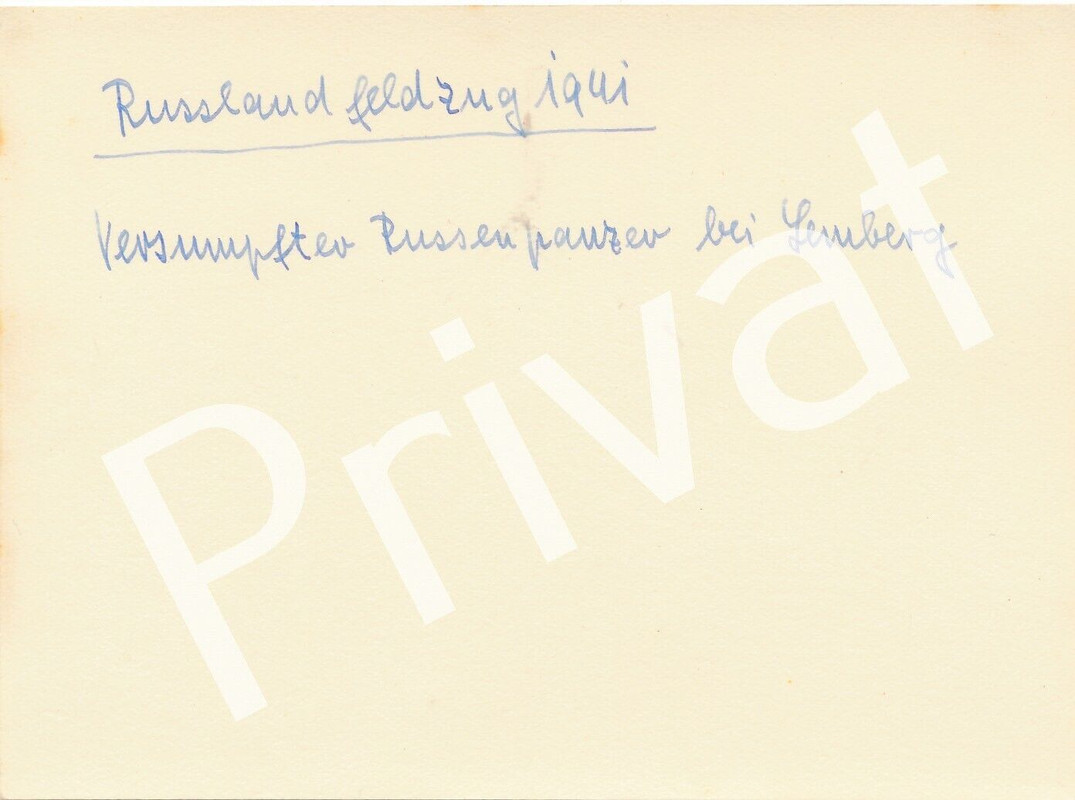 Russlandfeldzug 1941
Versumpfter Russenpanzer bei Lemberg
Privat